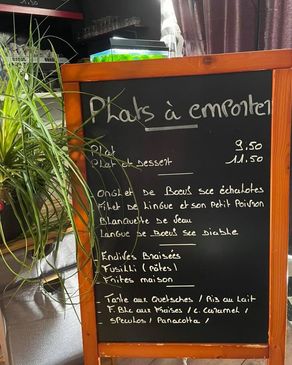 Plats à emporter
Plat 9.50
Plat et dessert 11.50
Onglet de Boeuf sce échalotes
Filet de Lingue et son petit Poivron
Blanquette de Veau
Langue de Boeuf sce Diable
- Endives Braisées
- Fusilli (pâtes)
- Frites maison
- Tarte aux Quetsches / Ris au Lait
- F. Blc aux Fraises / C. Caramel /
- Speculos / Panacotta /